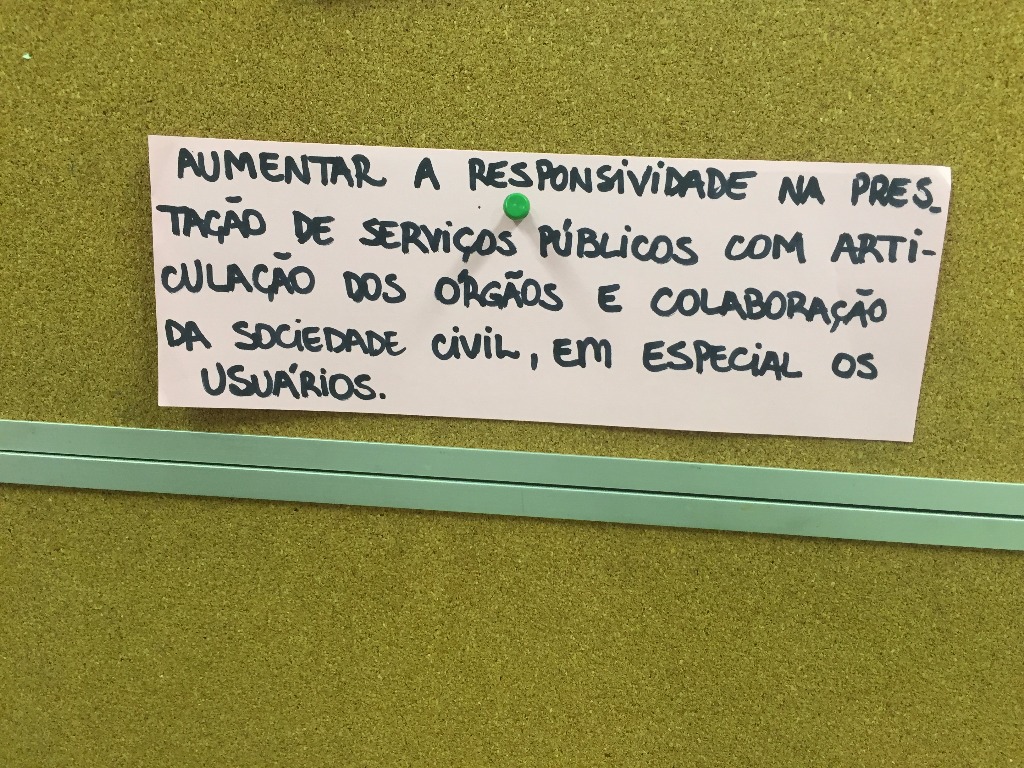 AUMENTAR A RESPONSIVIDADE NA PRES-
TAÇÃO DE SERVIÇOS PÚBLICOS COM ARTI-
CULAÇÃO DOS ÓRGÃOS E COLABORAÇÃO
DA SOCIEDADE CIVIL, EM ESPECIAL OS
USUÁRIOS.